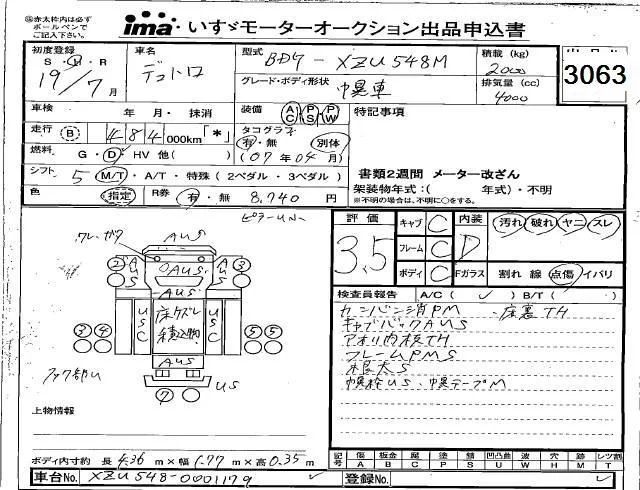 ㊟赤太枠内は必ず
ボールペンで
ご記入下さい
ima いすゞモーターオークション出品申込書
初度登録 車名 型式 積載 (kg)
S・H・R デュトロ BDG - XZU548M 2000
19年7月 グレード・ボディ形状 排気量 (cc)
巾幌車 4000
3063
車検 年・月・ 抹消 装備 AC PS PW 特記事項
走行 (B) 484,000km「*」 タコグラフ
有・無 別体
燃料 G・D・HV 他( ) (07年04月) 書類2週間 メーター改ざん
シフト 5 M/T・A/T・特殊 (2ペダル・3ペダル) 架装物年式:( 年式)・不明
※不明の場合は、不明に○をする。
色 指定 R券 有・無 8,740 円
評価 キャブ C 内装 汚れ 破れ ヤニ スレ
3.5 フレーム C D
ボディ C Fガラス 割れ 線 点傷 イバリ
AUS
AUS
AUS
AUS
US
検査員報告 A/C( ✓ )・B/T( )
カンバン消PM 床裏TH
キャブバックAUS
アオリ内枝TH
フレームPMS
根太S
幌枠US、幌テープM
上物情報
ボディ内寸約 長 4.36 m×幅 1.77 m×高 0.35 m
記号 傷 A 板金 B 腐 C 塗 P 錆 S 凹凸曲 U 波 W 穴 H 跡 M レツ割 T
車台No. XZU548-0001179 登録No.